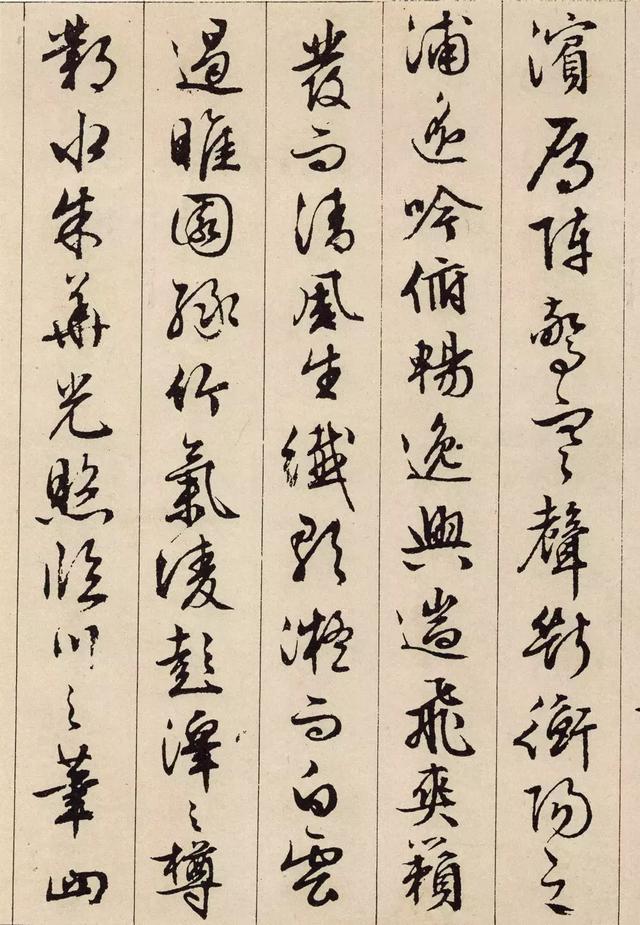 濱雁陣驚寒聲斷衡陽之
浦遥吟俯暢逸興遄飛爽籟
發而清風生纖歌凝而白雲
遏睢園緑竹氣凌彭澤之樽
鄴水朱華光照臨川之筆四